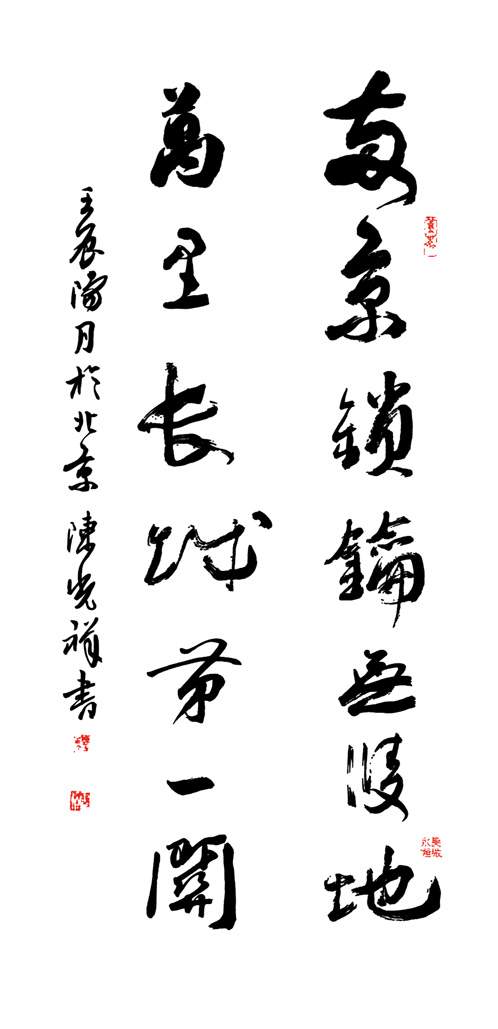 两京鎖鑰無雙地
萬里长城第一關
壬辰陽月於北京 陳光祥書